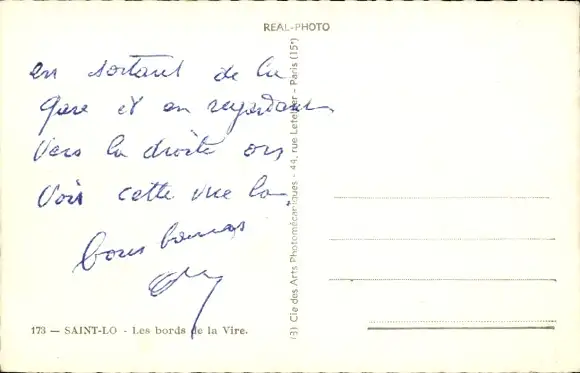 REAL-PHOTO
en sortant de la
gare et en regardant
vers la droite on
voit cette vue la,
bons baisers
173 — SAINT-LO - Les bords de la Vire.
(3) Cie des Arts Photomécaniques - 44, rue Letellier - Paris (15e)